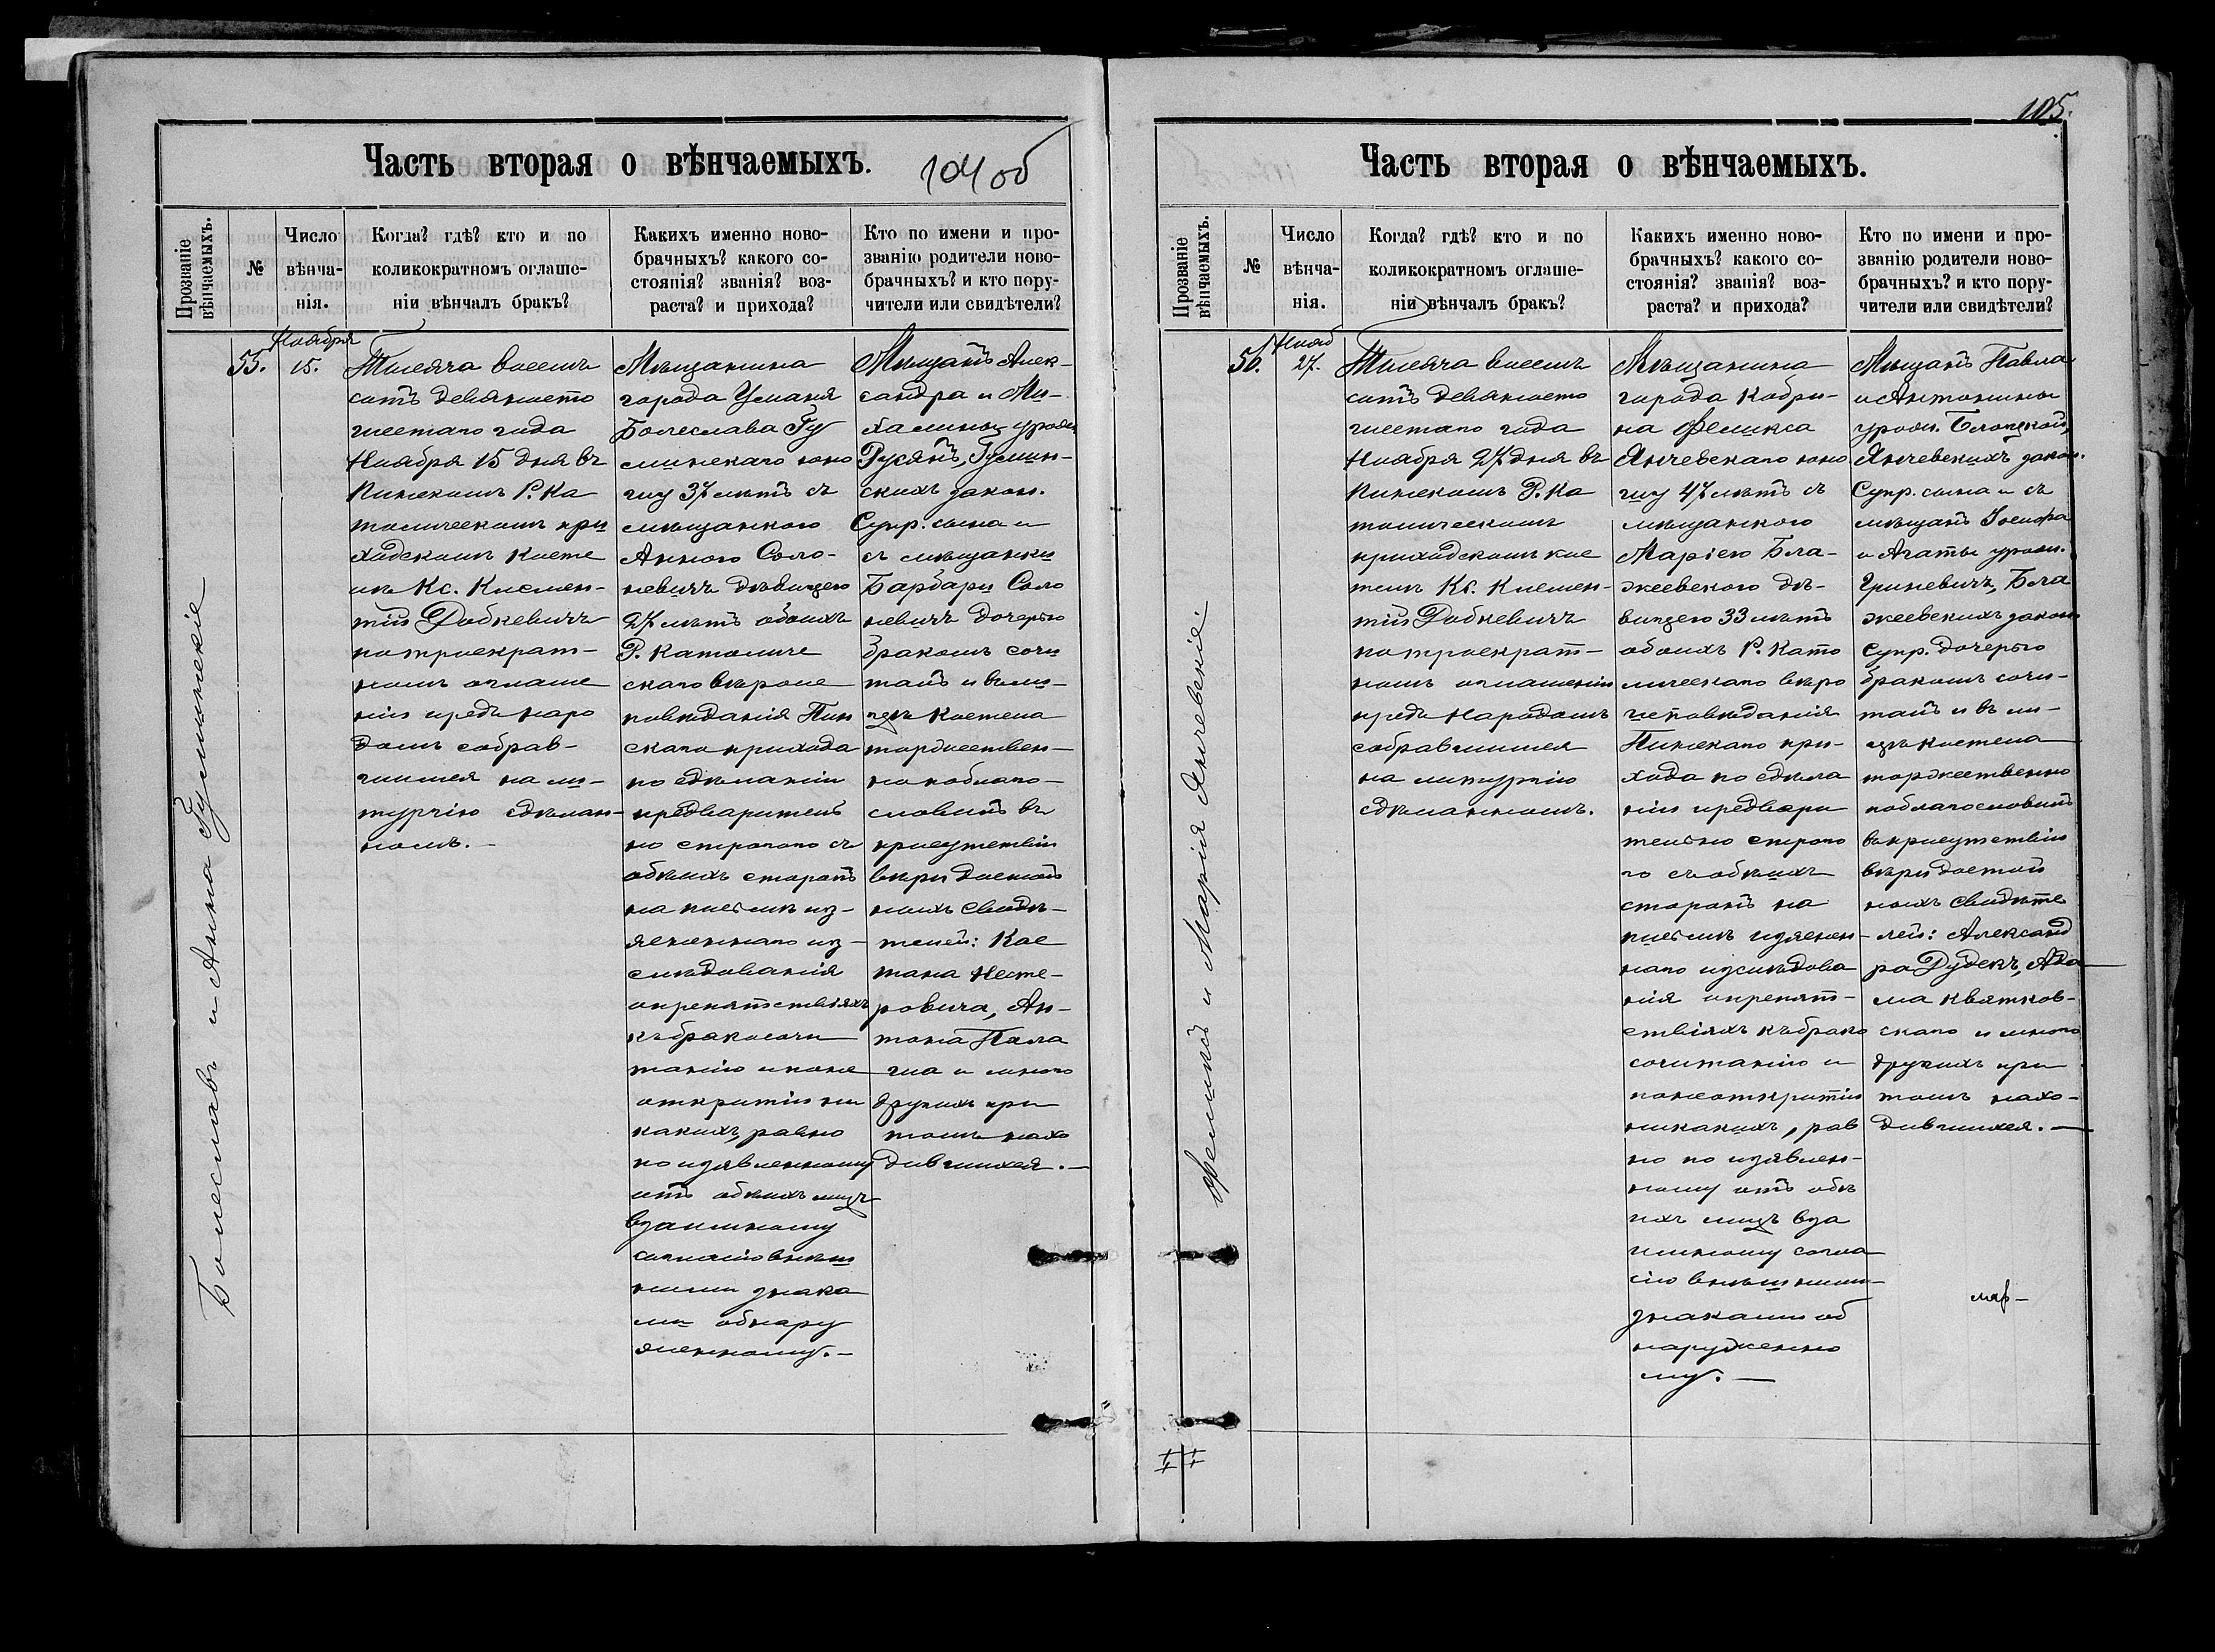 Часть вторая о вѣнчаемыхъ.
104 об
Прозваніе вѣнчаемыхъ.
№
Число вѣнча-
нія.
Когда? гдѣ? кто и по
коликократномъ оглаше-
ніи вѣнчалъ бракъ?
Какихъ именно ново-
брачныхъ? какого со-
стоянія? званія? воз-
раста? и прихода?
Кто по имени и про-
званію родители ново-
брачныхъ? и кто пору-
чители или свидѣтели?
Болеславъ и Анна Гусминскіе
55.
Ноября
15.
Тысяча восемь
сотъ девяносто
шестаго года
Ноября 15 дня въ
Пинскомъ Р. Ка
толическомъ при
ходскомъ косте
лѣ Кс. Клемен-
тій Добкевичъ
по троекрат-
номъ оглаше
ніи предъ наро
домъ собрав-
шимся на ли-
тургію сдѣлан-
номъ. -
Мѣщанина
города Уманя
Болеслава Гу
сминскаго юно
шу 37 лѣтъ съ
мѣщанкою
Анною Соло-
невичъ дѣвицею
27 лѣтъ обоихъ
Р. Католиче
скаго вѣроис
повѣданія Пин
скаго прихода
по сдѣланіи
предваритель
но строгаго съ
обѣихъ сторонъ
на письмѣ из-
ясненнаго из-
слѣдованія
о препятствіяхъ
къ бракосоче
танію и по не
открытіи ни
какихъ, равно
по изявленному
отъ обѣихъ лицъ
взаимному
согласію внѣш
ними знака
ми обнару
женному. -
Мѣщанъ Алек-
сандра и Ми-
халины урожд
Русянъ, Гусмин-
скихъ закон.
Супр. сына и
съ мѣщанки
Барбары Соло
невичъ дочерью
бракомъ соче
талъ и въ ли-
цѣ костела
торжествен-
но поблаго-
словилъ въ
присутствіи
вѣри достой
ныхъ свидѣ-
телей: Кае
тана Несте-
ровича, Ан-
тона Пала
ша и много
другихъ при
томъ нахо
дившихся. -
105.
Часть вторая о вѣнчаемыхъ.
Прозваніе вѣнчаемыхъ.
№
Число вѣнча-
нія.
Когда? гдѣ? кто и по
коликократномъ оглаше-
ніи вѣнчалъ бракъ?
Какихъ именно ново-
брачныхъ? какого со-
стоянія? званія? воз-
раста? и прихода?
Кто по имени и про-
званію родители ново-
брачныхъ? и кто пору-
чители или свидѣтели?
Феликсъ и Марія Янчевскіе.
56.
Нояб
27.
Тысяча восемь
сотъ девяносто
шестаго года
Ноября 27 дня въ
Пинскомъ Р. Ка
толическомъ
приходскомъ кос
телѣ Кс. Клемен-
тій Добкевичъ
по троекрат-
номъ оглашеніи
предъ народомъ
собравшимся
на литургію
сдѣланномъ.
Мѣщанина
города Кобри-
на Феликса
Янчевскаго юно
шу 47 лѣтъ съ
мѣщанкою
Маріею Бла-
жеевскою дѣ-
вицею 33 лѣтъ
обоихъ Р. Като
лическаго вѣро
исповѣданія
Пинскаго при-
хода по сдѣла
ніи предвари
тельно строга
го съ обѣихъ
сторонъ на
письмѣ изяснен-
наго изслѣдова
нія о препят-
ствіяхъ къ брако
сочетанію и
по неоткрытіи
никакихъ, рав
но по изявлен-
ному отъ обѣ
ихъ лицъ вза
имному согла
сію внѣшними
знаками об
наруженно
му. -
Мѣщанъ Павла
и Антонины
урожд. Блоцкой,
Янчевскихъ закон.
Супр. сына и съ
мѣщанъ Іосифа
и Агаты урожд.
Гриневичъ, Бла
жеевскихъ закон
Супр. дочерью
бракомъ соче-
талъ и въ ли-
цѣ костела
торжественно
поблагословилъ
въ присутствіи
вѣри достой
ныхъ свидѣте
лей: Александ
ра Дудекъ, Ада
ма Квятков-
скаго и много
другихъ при
томъ нахо-
дившихся. -